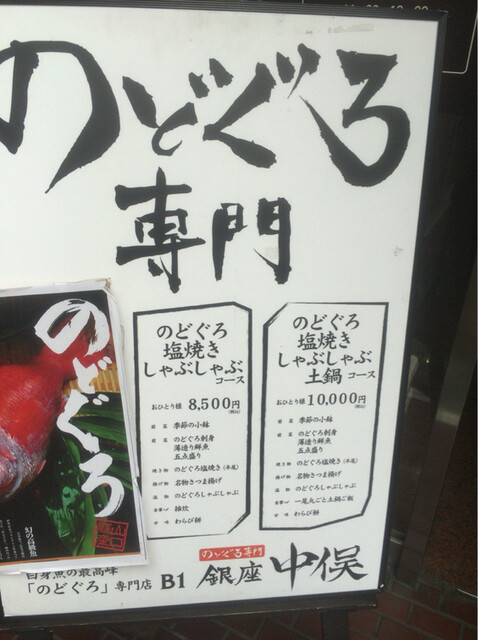 のどぐろ
専門
のどぐろ
塩焼き
しゃぶしゃぶ
コース
おひとり様 8,500円
(税込)
前菜 季節の小鉢
前菜 のどぐろ刺身
薄造り鮮魚
五点盛り
焼き物 のどぐろ塩焼き(半尾)
揚げ物 名物さつま揚げ
温物 のどぐろしゃぶしゃぶ
食事 雑炊
甘味 わらび餅
のどぐろ
塩焼き
しゃぶしゃぶ
土鍋コース
おひとり様 10,000円
(税込)
前菜 季節の小鉢
前菜 のどぐろ刺身
薄造り鮮魚
五点盛り
焼き物 のどぐろ塩焼き(半尾)
揚げ物 名物さつま揚げ
温物 のどぐろしゃぶしゃぶ
一尾丸ごと土鍋ご飯
甘味 わらび餅
のどぐろ
幻の高級魚
白身魚の最高峰
「のどぐろ」専門店 B1
のどぐろ専門
銀座 中俣